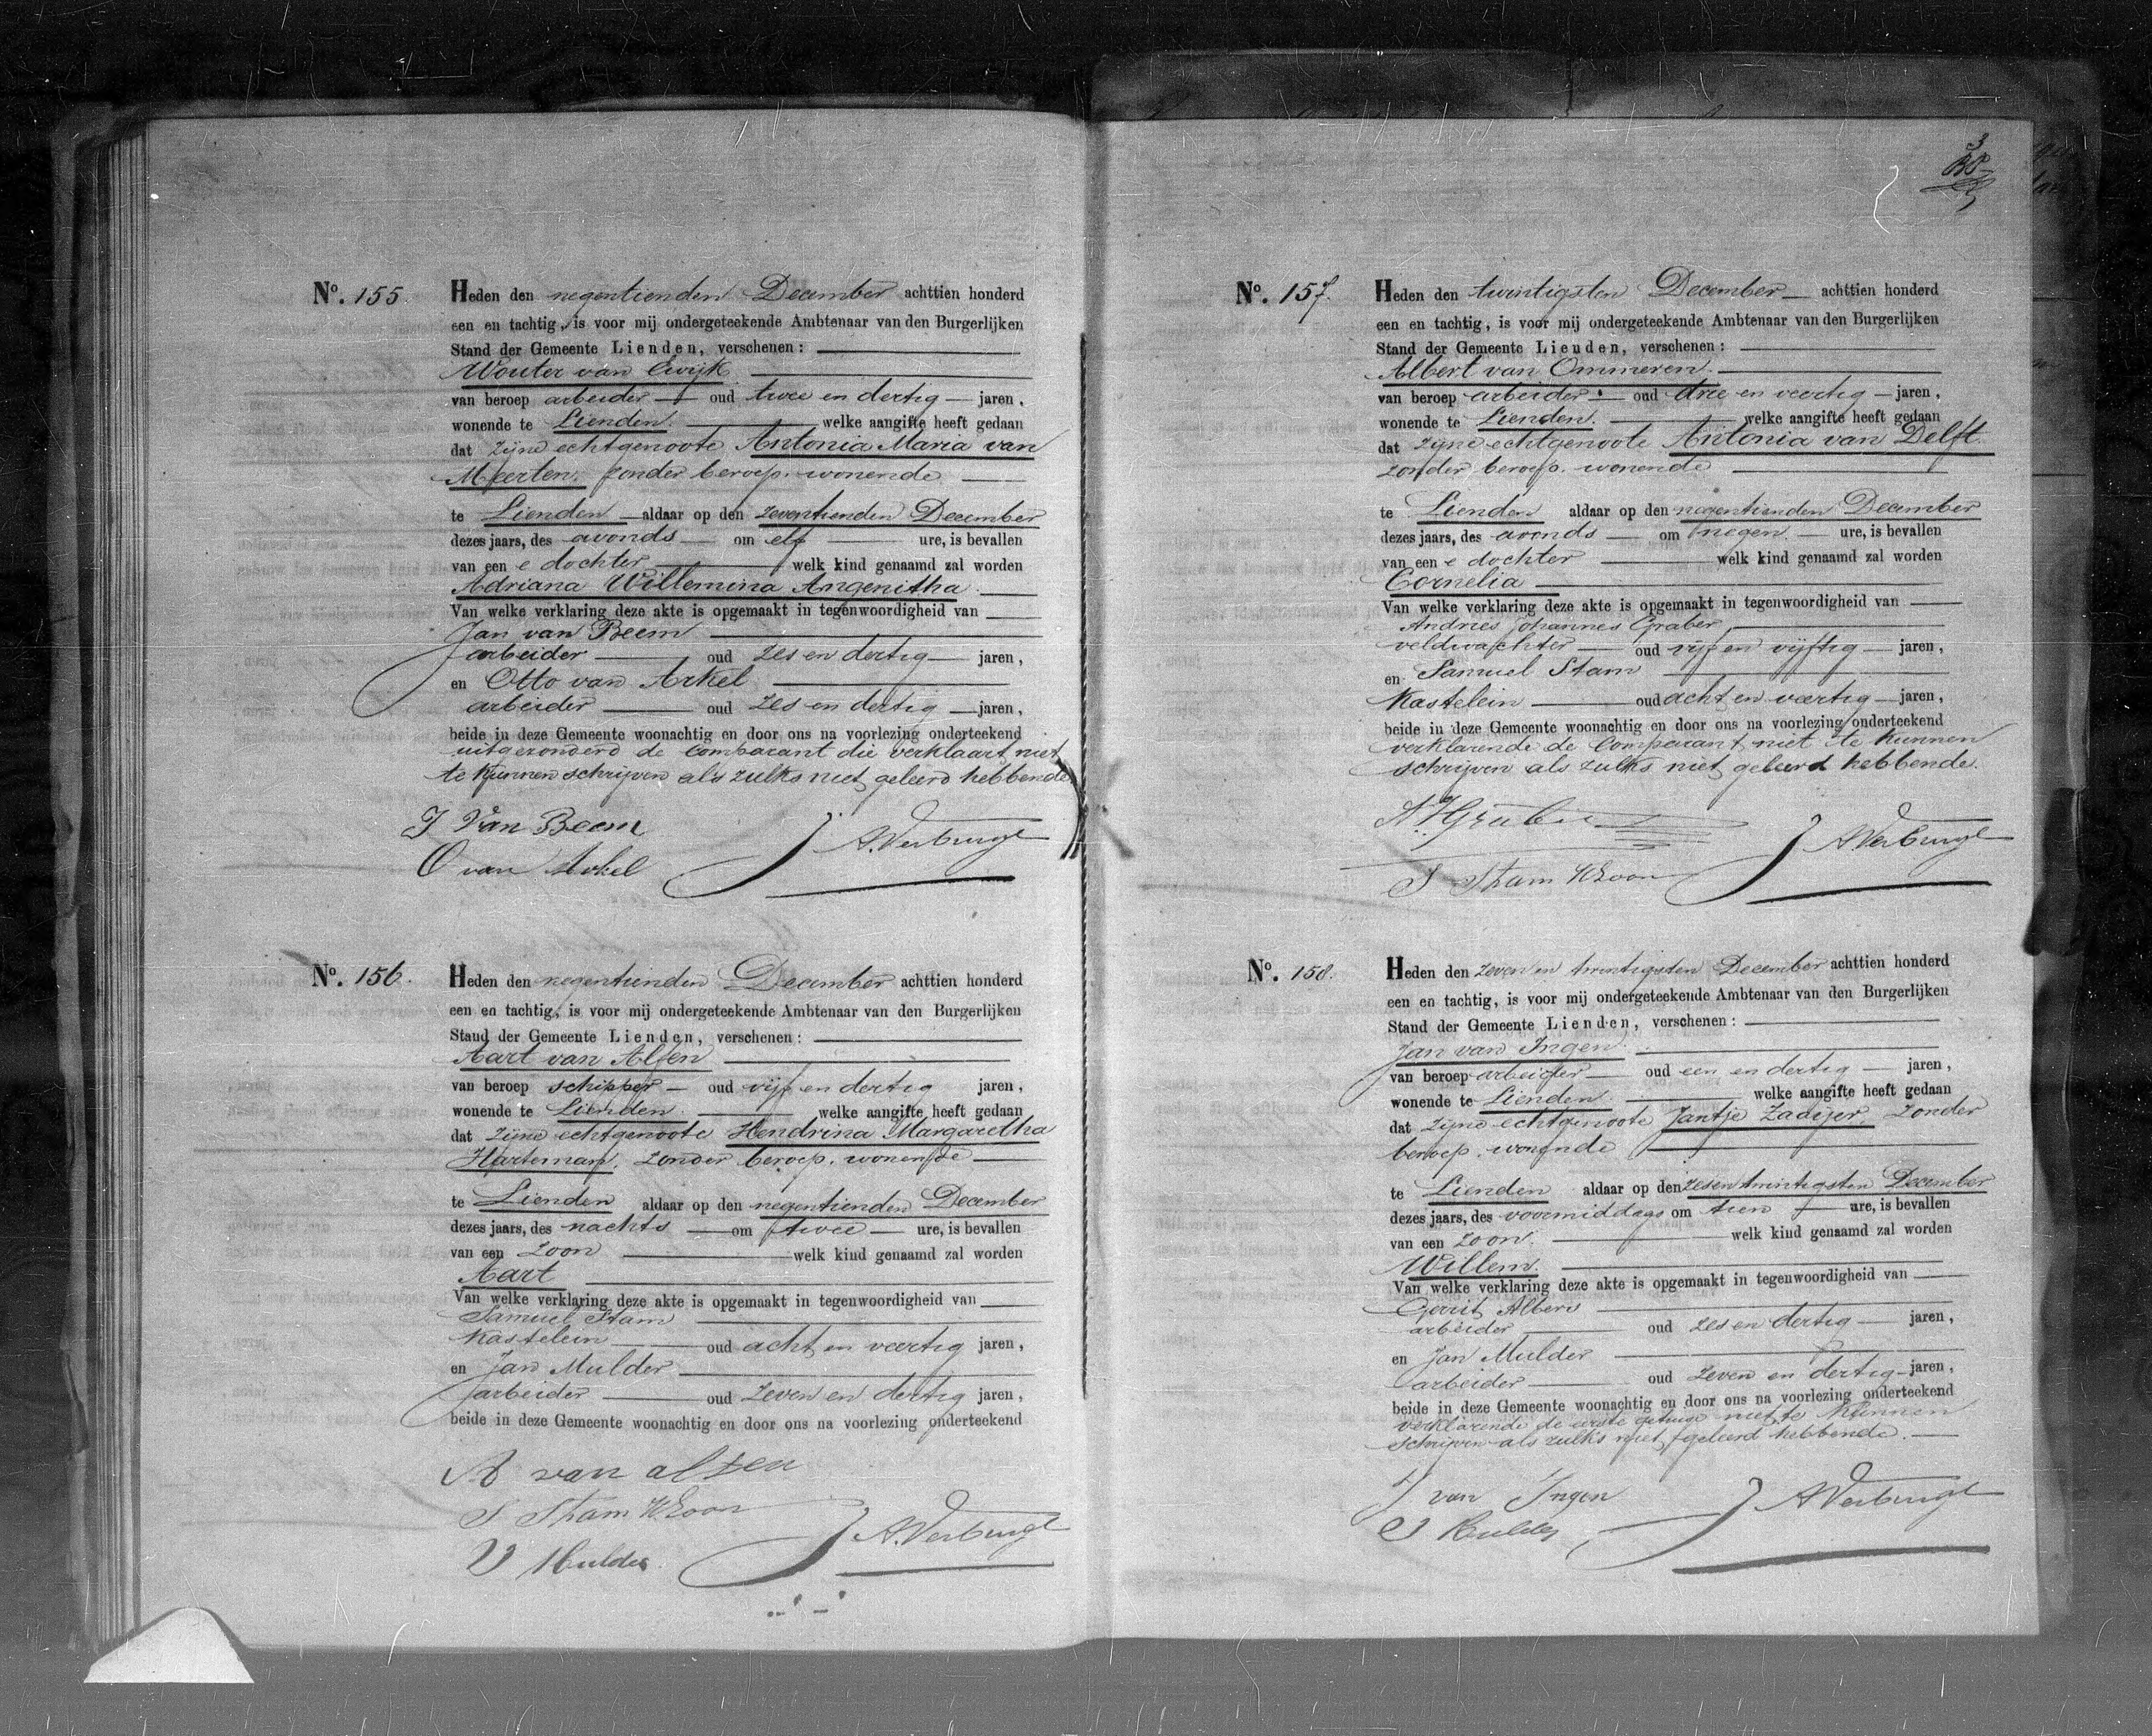 No. 155.
Heden den negentienden December achttien honderd
een en tachtig, is voor mij ondergeteekende Ambtenaar van den Burgerlijken
Stand der Gemeente Lienden, verschenen:
Wouter van Ewijk
van beroep arbeider oud twee en dertig jaren,
wonende te Lienden. welke aangifte heeft gedaan
dat zijne echtgenoote Antonia Maria van
Meerten, zonder beroep, wonende
te Lienden aldaar op den zeventienden December
dezes jaars, des avonds om elf ure, is bevallen
van een e dochter welk kind genaamd zal worden
Adriana Willemina Angenitha.
Van welke verklaring deze akte is opgemaakt in tegenwoordigheid van
Jan van Beem
arbeider oud zes en dertig jaren,
en Otto van Arkel
arbeider oud zes en dertig jaren,
beide in deze Gemeente woonachtig en door ons na voorlezing onderteekend
uitgezonderd de Comparant die verklaart niet
te kunnen schrijven als zulks niet geleerd hebbende
J van Beem
O van Arkel
A. Verburgt
No. 156.
Heden den negentienden December achttien honderd
een en tachtig, is voor mij ondergeteekende Ambtenaar van den Burgerlijken
Stand der Gemeente Lienden, verschenen:
Aart van Alfen
van beroep schipper oud vijf en dertig jaren,
wonende te Lienden. welke aangifte heeft gedaan
dat zijne echtgenoote Hendrina Margaretha
Harteman, zonder beroep, wonende
te Lienden aldaar op den negentienden December
dezes jaars, des nachts om twee ure, is bevallen
van een zoon welk kind genaamd zal worden
Aart
Van welke verklaring deze akte is opgemaakt in tegenwoordigheid van
Samuel Stam
Kastelein oud acht en veertig jaren,
en Jan Mulder
arbeider oud zeven en dertig jaren,
beide in deze Gemeente woonachtig en door ons na voorlezing onderteekend
A van alfen
S Stam WZoon
J Mulder
A. Verburgt
No. 157.
Heden den twintigsten December achttien honderd
een en tachtig, is voor mij ondergeteekende Ambtenaar van den Burgerlijken
Stand der Gemeente Lienden, verschenen:
Albert van Ommeren.
van beroep arbeider oud drie en veertig jaren,
wonende te Lienden. welke aangifte heeft gedaan
dat zijne echtgenoote Antonia van Delft.
zonder beroep, wonende
te Lienden aldaar op den negentienden December
dezes jaars, des avonds om negen ure, is bevallen
van een e dochter welk kind genaamd zal worden
Cornelia
Van welke verklaring deze akte is opgemaakt in tegenwoordigheid van
Andries Johannes Graber,
veldwachter oud vijf en vijftig jaren,
en Samuel Stam
Kastelein oud acht en veertig jaren,
beide in deze Gemeente woonachtig en door ons na voorlezing onderteekend
verklarende de Comparant niet te kunnen
schrijven als zulks niet geleerd hebbende.
S Stam WZoon
A. Verburgt
No. 158.
Heden den zeven en twintigsten December achttien honderd
een en tachtig, is voor mij ondergeteekende Ambtenaar van den Burgerlijken
Stand der Gemeente Lienden, verschenen:
Jan van Ingen.
van beroep arbeider oud een en dertig jaren,
wonende te Lienden. welke aangifte heeft gedaan
dat zijne echtgenoote Jantje Zadijer, zonder
beroep, wonende
te Lienden aldaar op den zesentwintigsten December
dezes jaars, des voormiddags om tien ure, is bevallen
van een zoon. welk kind genaamd zal worden
Willem.
Van welke verklaring deze akte is opgemaakt in tegenwoordigheid van
Gerrit Albers
arbeider oud zes en dertig jaren,
en Jan Mulder
arbeider oud zeven en dertig jaren,
beide in deze Gemeente woonachtig en door ons na voorlezing onderteekend
verklarende de eerste getuige niet te kunnen
schrijven als zulks niet geleerd hebbende.
J van Ingen
J Mulder
A Verburgt